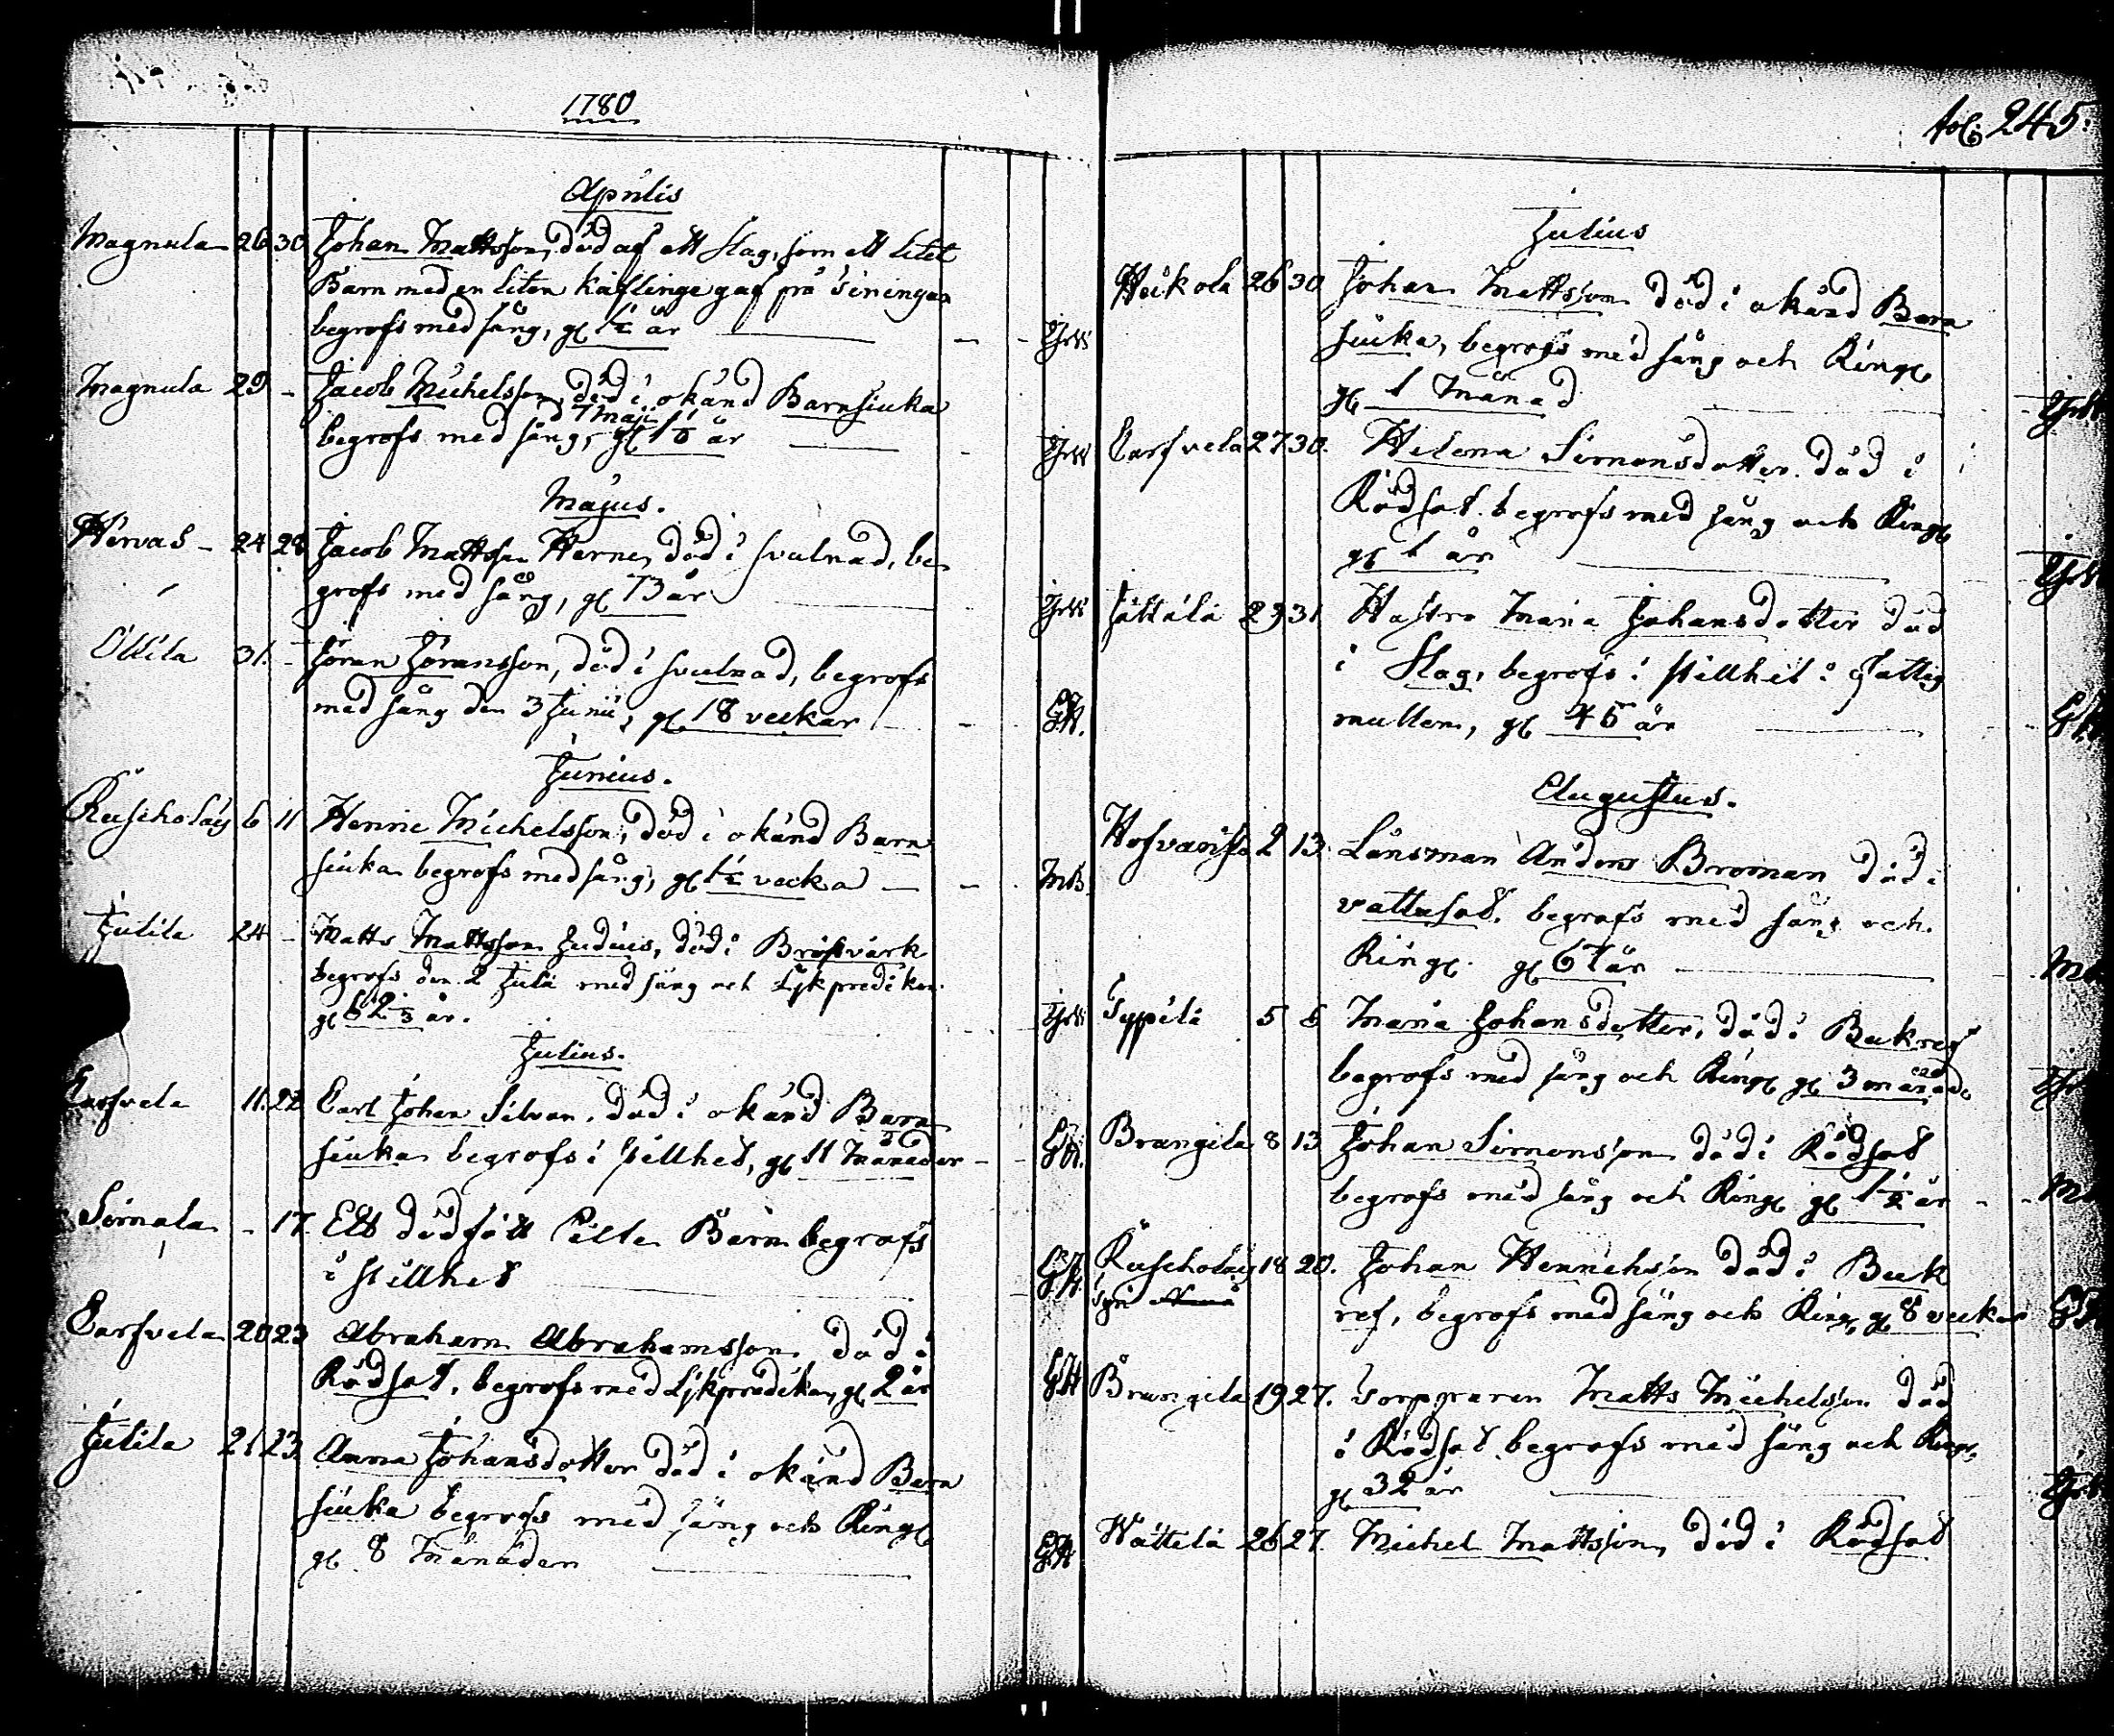 1780
Aprilis
Magnula 26 30 Johan Mattsson, död af ett slag, som ett litet
Barn med en liten käflinge gaf på tinningen
begrofs med sång, gl 1½ år
Magnula 29 - Jacob Michelsson, död i okänd Barnsiuka
d 7 Maji
begrofs med sång, gl 1 1/6 år
Majus.
Hirvas - 24 28 Jacob Mattsson Harne, död i svulnad, be
grofs med sång, gl 73 år
Ollila 31. - Jöran Jöransson, död i svulnad, begrofs
med sång den 3 Junii, gl 18 veckar
Junius.
Ruscholaig 6 11 Henric Michelsson, död i okänd Barn
siuka begrofs med sång, gl 1½ vecka MB
Jutila 24 - Matts Mattsson Judius, död i Bröstvärk
begrofs den 2 Julii med sång och Lijkpredikan
gl 62 ⅓ år.
Julius.
Carfvela 11. 22 Carl Johan Silvan. död i okänd Barn
siuka begrofs i stillhet, gl 11 Månader
Sornala - 17. Ett dödfött Pilte Barn begrofs
i stillhet
Carfvela 20 23 Abraham Abrahamsson. död i
Rödsot. begrofs med Lijkpredikan, gl 2 år
Jutila 21 23. Anna Johansdotter död i okänd Barn
siuka begrofs med sång och Ringl
gl 8 Månader
fol: 245:
Julius
Heikola 26 30 Johan Mattsson död i okänd Barn
siuka, begrofs med sång och Ringl
gl 1 Månad
Carfvela 27 30. Helena Simonsdotter. död i
Rödsot. begrofs med sång och Ringl
gl 1 år
Jättälä 29 31 Hustro Maria Johansdotter död
i Slag, begrofs i stillhet i fattig
mullen, gl 45 år
Augustus.
2 13. Länsman Anders Broman död i
vattusot. begrofs med sång och
Ringl. gl 67 år
Typpilä 5 6 Maria Johansdotter, död i Bukref
begrofs med sång och Ringl gl 3 månad
Brangila 8 13 Johan Simonsson död i Rödsot
begrofs med sång och Ringl gl 1½ år
Ruscholaig 18 20. Johan Henrichsson död i Buk
ref, begrofs med sång och Ringl, gl 8 veckar
Brangila 19 27. Corpraren Matts Michelsson död
i Rödsot begrofs med sång och Ringl,
gl 32 år
Wättilä 26 27. Michel Mattsson, död i Rödsot